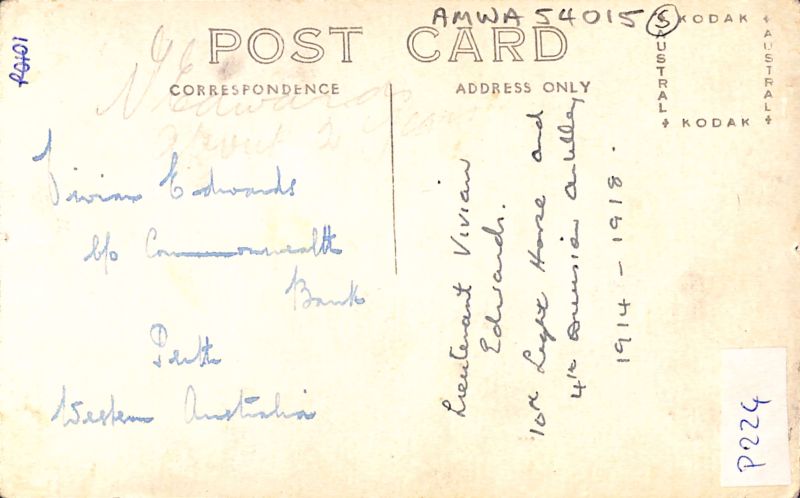 AMWA 54015 S
P0101
POST CARD
CORRESPONDENCE
ADDRESS ONLY
KODAK
AUSTRAL
AUSTRAL
KODAK
V Edwards
about 2 years
Vivian Edwards
c/o Commonwealth
Bank
Perth
Western Australia
Lieutenant Vivian
Edwards.
10th Light Horse and
4th Division Artillery
1914 - 1918.
P224